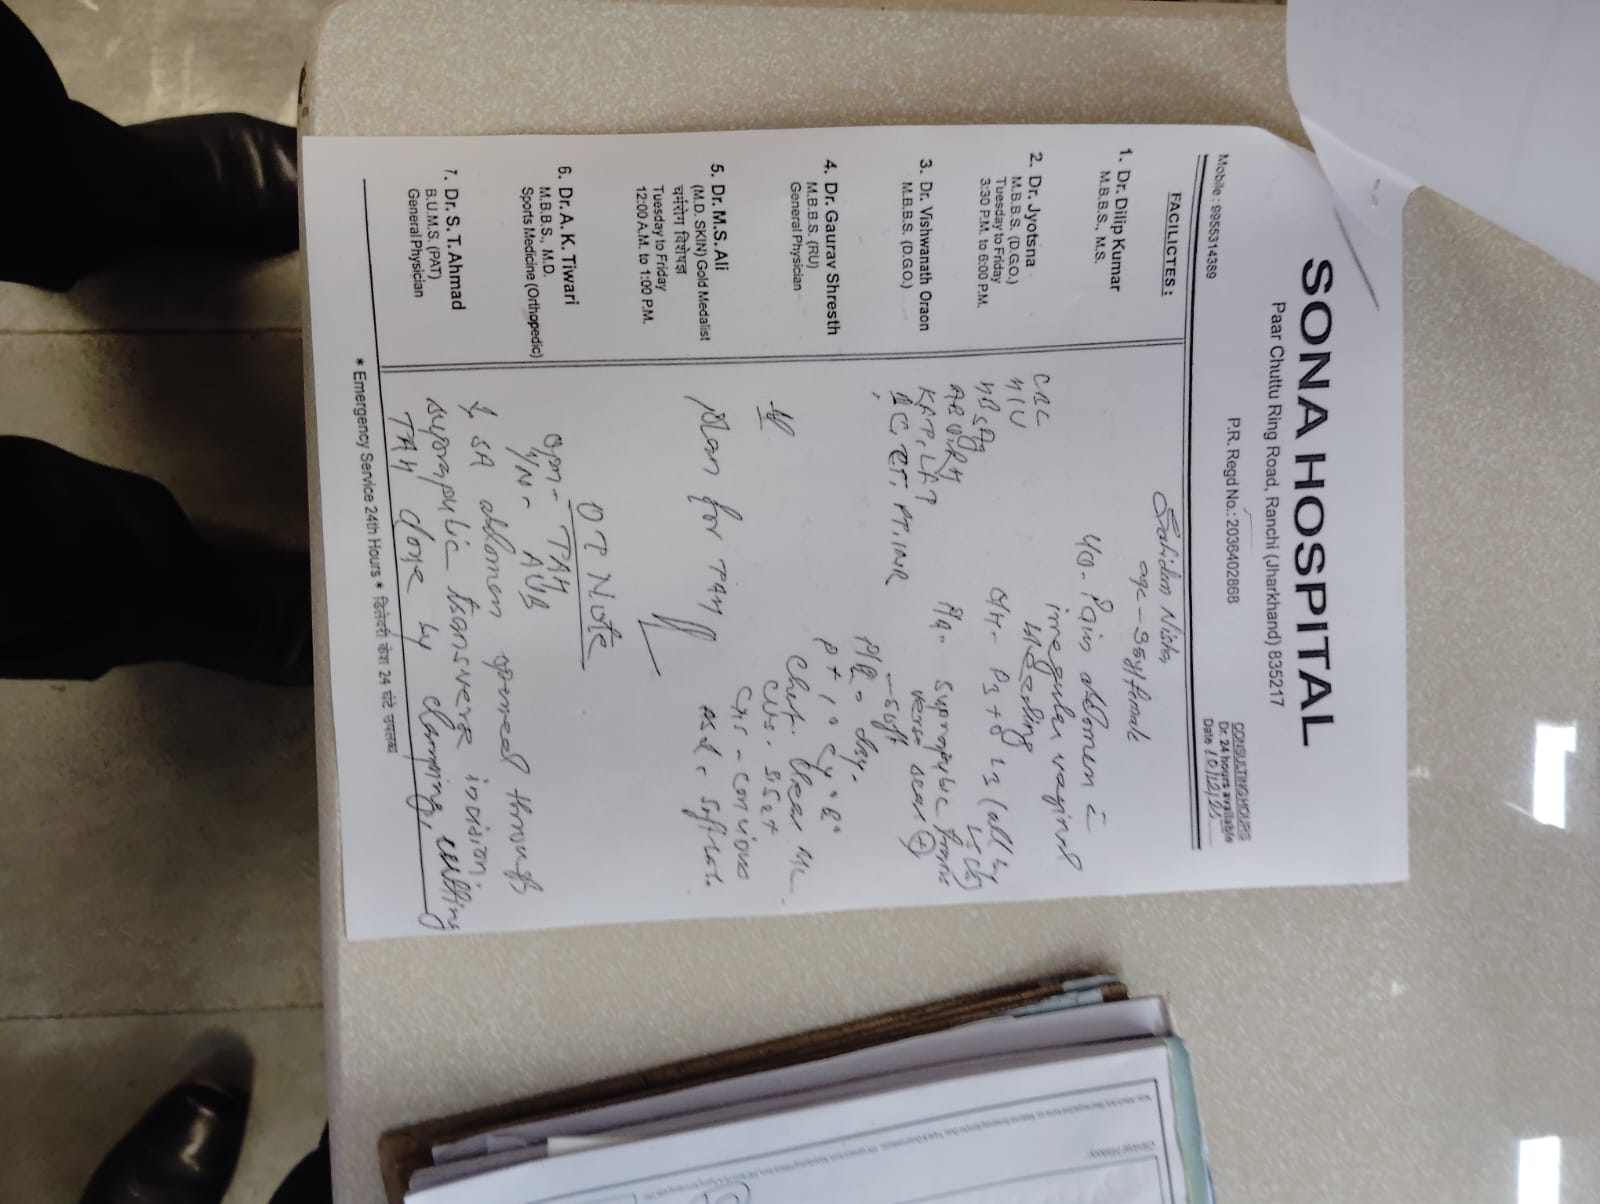 SONA HOSPITAL
Paar Chuttu Ring Road, Ranchi (Jharkhand) 835217
Mobile : 9955314389
P.R. Regd No.: 2036402868
CONSULTING HOURS
Dr. 24 hours available
Date
FACILICTES :
1. Dr. Dilip Kumar
M.B.B.S., M.S.
2. Dr. Jyotsna
M.B.B.S. (D.G.O.)
Tuesday to Friday
3:30 P.M. to 6:00 P.M.
3. Dr. Vishwanath Oraon
M.B.B.S. (D.G.O.)
4. Dr. Gaurav Shresth
M.B.B.S. (RU)
General Physician
5. Dr. M.S. Ali
(M.D. SKIN) Gold Medalist
चर्मरोग विशेषज्ञ
Tuesday to Friday
12:00 A.M. to 1:00 P.M.
6. Dr. A. K. Tiwari
M.B.B.S., M.D.
Sports Medicine (Orthopedic)
7. Dr. S. T. Ahmad
B.U.M.S. (PAT)
General Physician
age - 35y/female
Pain abdomen c̄
irregular vaginal
bleeding
O/H - P3+0 L3 (all by
LSCS)
P/A - suprapubic trans
verse scar (+)
- soft
CBC
HIV
HBsAg
ABO/RH
KFT, LFT
BT, CT, PT, INR
Chest - clear
CVS - S1S2+
CNS - conscious
Plan for TAH
OT Note
Opn - TAH
AUB
↓ SA abdomen opened through
suprapubic transverse incision.
TAH done by clamping, cutting
* Emergency Service 24th Hours * डिलेवरी केश 24 घंटे उपलब्ध